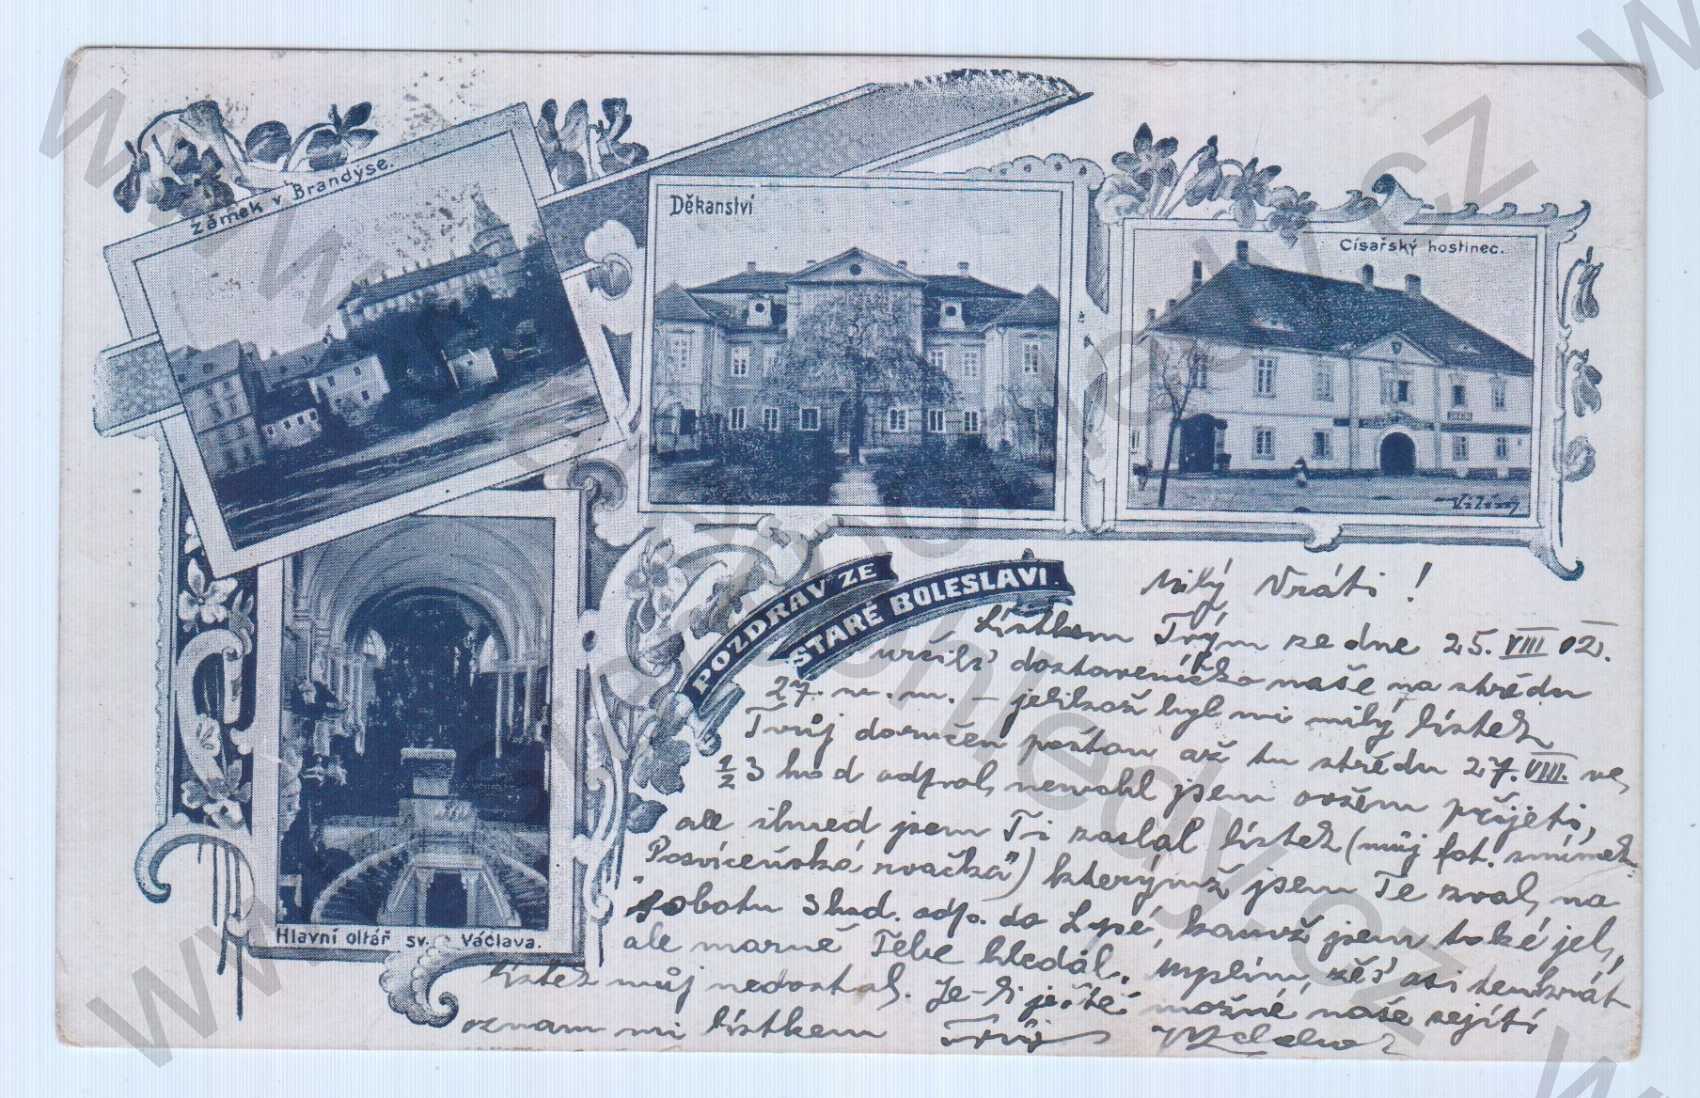 Zámek v Brandýse.
Děkanství
Císařský hostinec.
Hlavní oltář sv. Václava.
POZDRAV ZE
STARÉ BOLESLAVI.
Milý Vráti!
Lístkem Tvým ze dne 25. VIII 02.
určils' dostaveníčko naše na středu
27. m. m. – jelikož byl mi milý lístek
Tvůj doručen poštou až tu středu 27. VIII. ve
½3 hod odpol, nemohl jsem ovšem přijeti,
ale ihned jsem Ti zaslal lístek (můj fot. snímek
"Posvícenská rvačka") kterýmž jsem Te zval, na
sobotu 3 hod. odp. do Lysé, kamž jsem také jel,
ale marně Tebe hledal. Myslím, žes' asi tenkrát
lístek můj nedostal. Je-li ještě možné naše sejítí
oznam mi lístkem Tvůj
www.starepohledy.cz